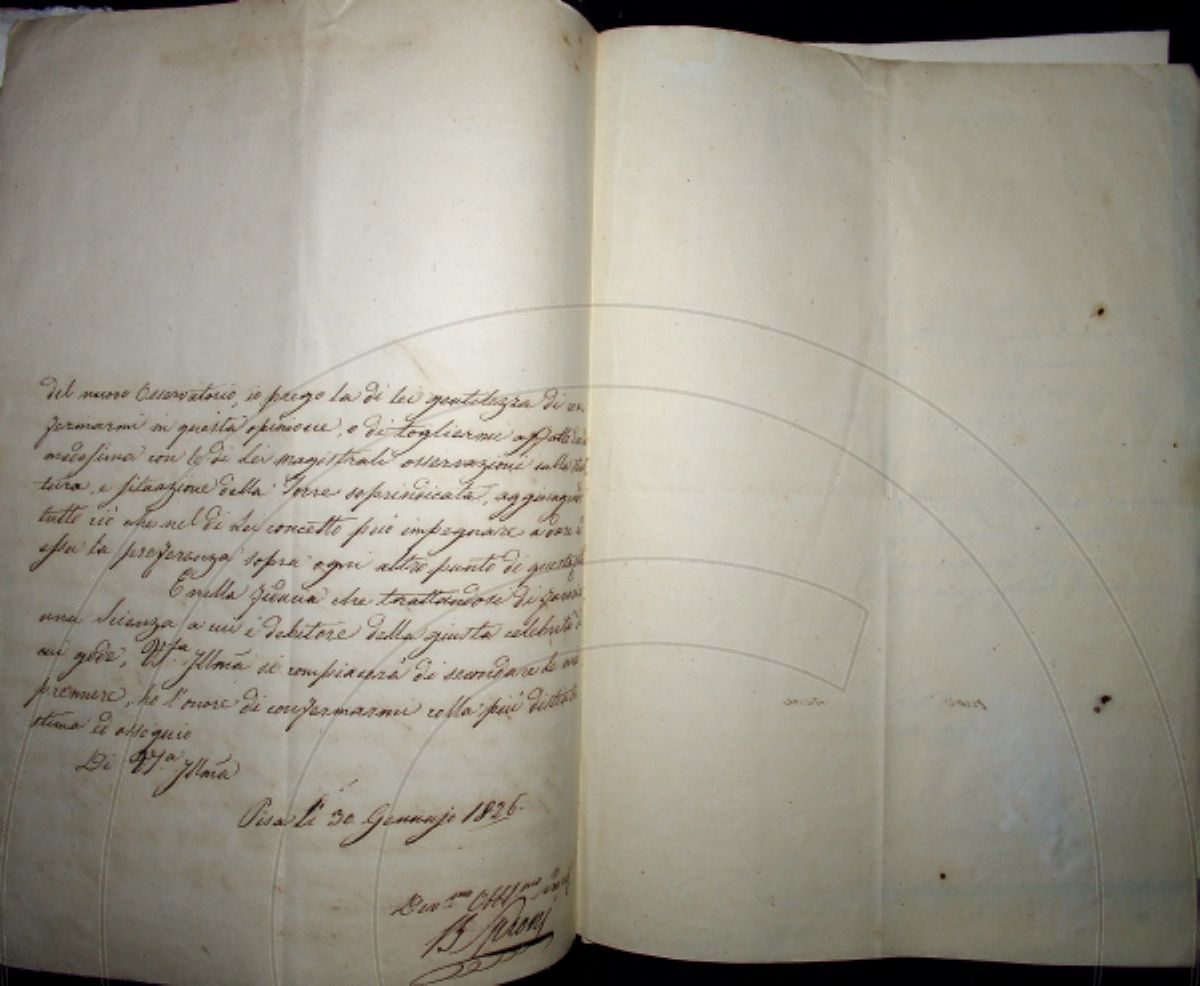 del nuovo Osservatorio, io prego la di lei gentilezza di con
fermarmi in questa opinione, o di togliermi affatto
medesima con le di Lei magistrali osservazioni sulla
tura, e situazione della Torre soprindicata, aggiungend
tutto ciò che nel di Lei concetto può impegnare a dare
essa la preferenza sopra ogni altro punto di questa
E nella fiducia che trattandosi di
una Scienza a cui è debitore della giusta celebrità di
cui gode, V.S.ª Illma si compiacerà di secondare le mie
premure, ho l'onore di confermarmi colla più distinta
stima ed ossequio
Di V.S.ª Illma
Pisa li 30 Gennajo 1826
Dev.mo Obbl.mo
B